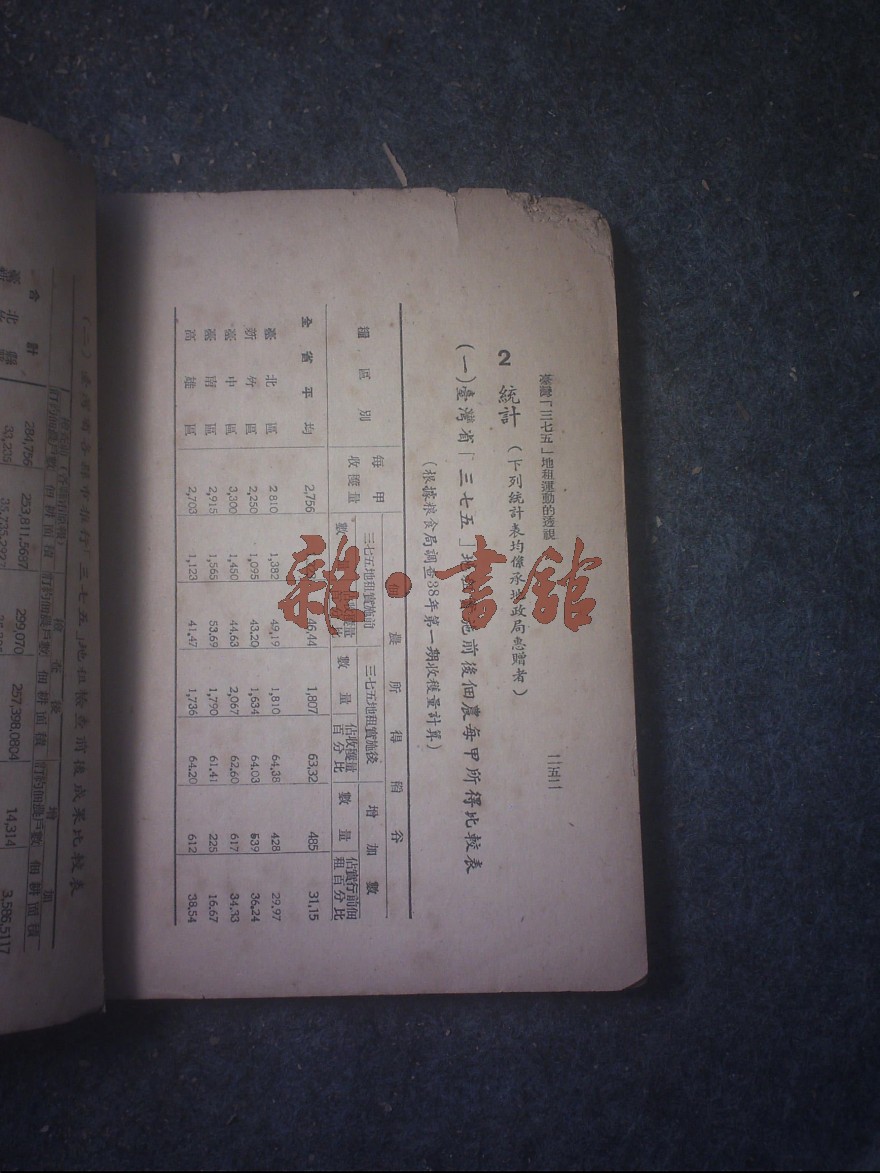 臺灣「三七五」地租運動的透視
2 統計 (下列統計表均係承地政局
(一)臺灣省「三七五」地租實施前後佃農每甲所得比較表
(根據粮食局調查38年第一期收穫量計算)
糧區別 每甲收穫量 佃農所得稻谷
三七五地租實施前 三七五地租實施後 增加數
數量 佔收穫量百分比 數量 佔收穫量百分比 數量 佔實行前佃租百分比
全省平均 2,756 46.44 1,807 63.32 485 31.15
臺北區 2,810 1,382 49.19 1,810 64.38 428 29.97
新竹區 2,250 1,095 43.20 1,634 64.03 539 36.24
臺中區 3,300 1,450 44.63 2,067 62.60 617 34.33
臺南區 2,915 1,565 53.69 1,790 61.41 225 16.67
高雄區 2,703 1,123 41.47 1,736 64.20 612 38.54
三七五」地租檢查前後成果比較表
檢查後 增加
訂約佃農戶數 佃耕面積 訂約佃農戶數 佃耕面積 訂約佃農戶數 佃耕面積
合計 284,756 253,811.5687 299,070 257,398.0804 14,314 3,586.5117
33,235
雜·書館